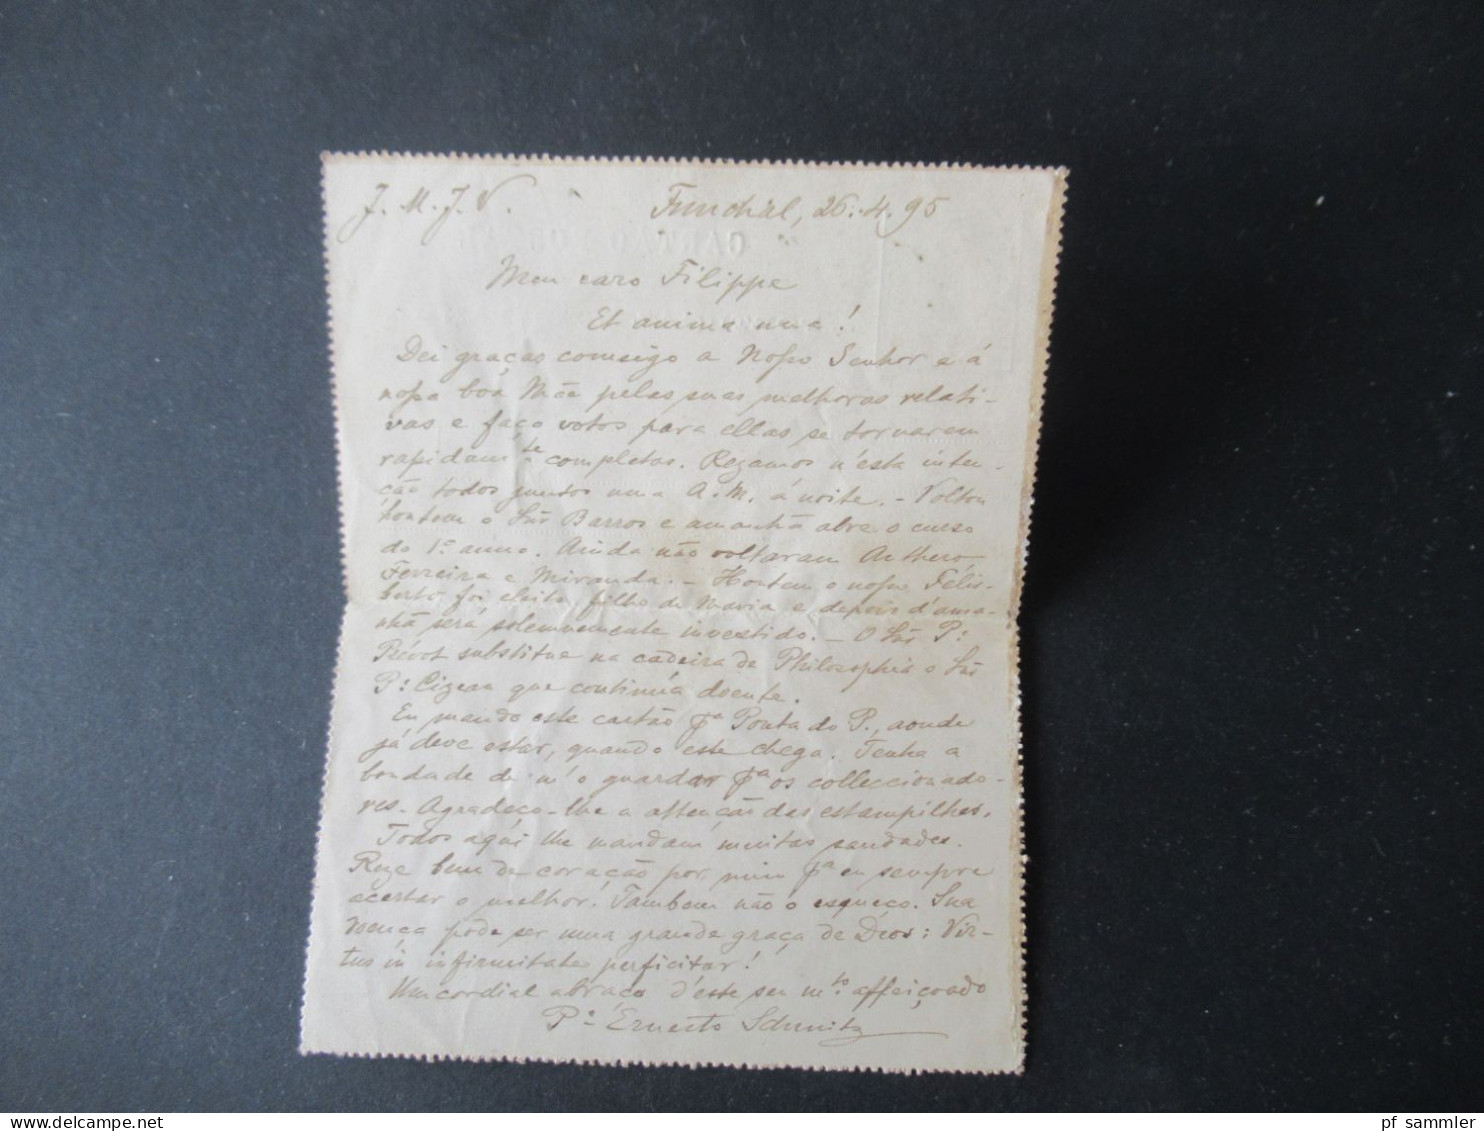 J. M. J. V. Funchal, 26.4.95
Meu caro Filippe
Et anima una!
Dei graças comsigo a Nosso Senhor e á
nossa boa Mãe pelas suas melhoras relati-
vas e faço votos para ellas se tornarem
rapidamte completas. Rezamos n'esta inten-
ção todos juntos uma A. M. á noite. - Voltou
hontem o Snr Barros e amanhã abre o curso
do 1º anno. Ainda não voltaram Anthero,
Ferreira e Miranda. - Hontem o nosso Felis-
berto foi eleito filho de Maria e depois d'ama-
nhã será solemnemente investido. - O Snr Pe
Prévot substitue na cadeira de Philosophia o Snr
Pe Cizeau que continúa doente.
Eu mando este cartão pa Ponta do P., aonde
já deve estar, quando este chega. Tenha a
bondade de m'o guardar pa os colleccionado-
res. Agradeço-lhe a attenção das estampilhas.
Todos aqúi lhe mandam muitas saudades.
Reze bem de coração por mim pa eu sempre
acertar o melhor. Tambem não o esqueço. Sua
doença pode ser uma grande graça de Deos: Vir-
tus in infirmitate perficitur!
Um cordial abraço d'este seu mto affeiçoado
Pe Ernesto Schmitz
CARTÃO POSTAL
www.delcampe.net
pf sammler